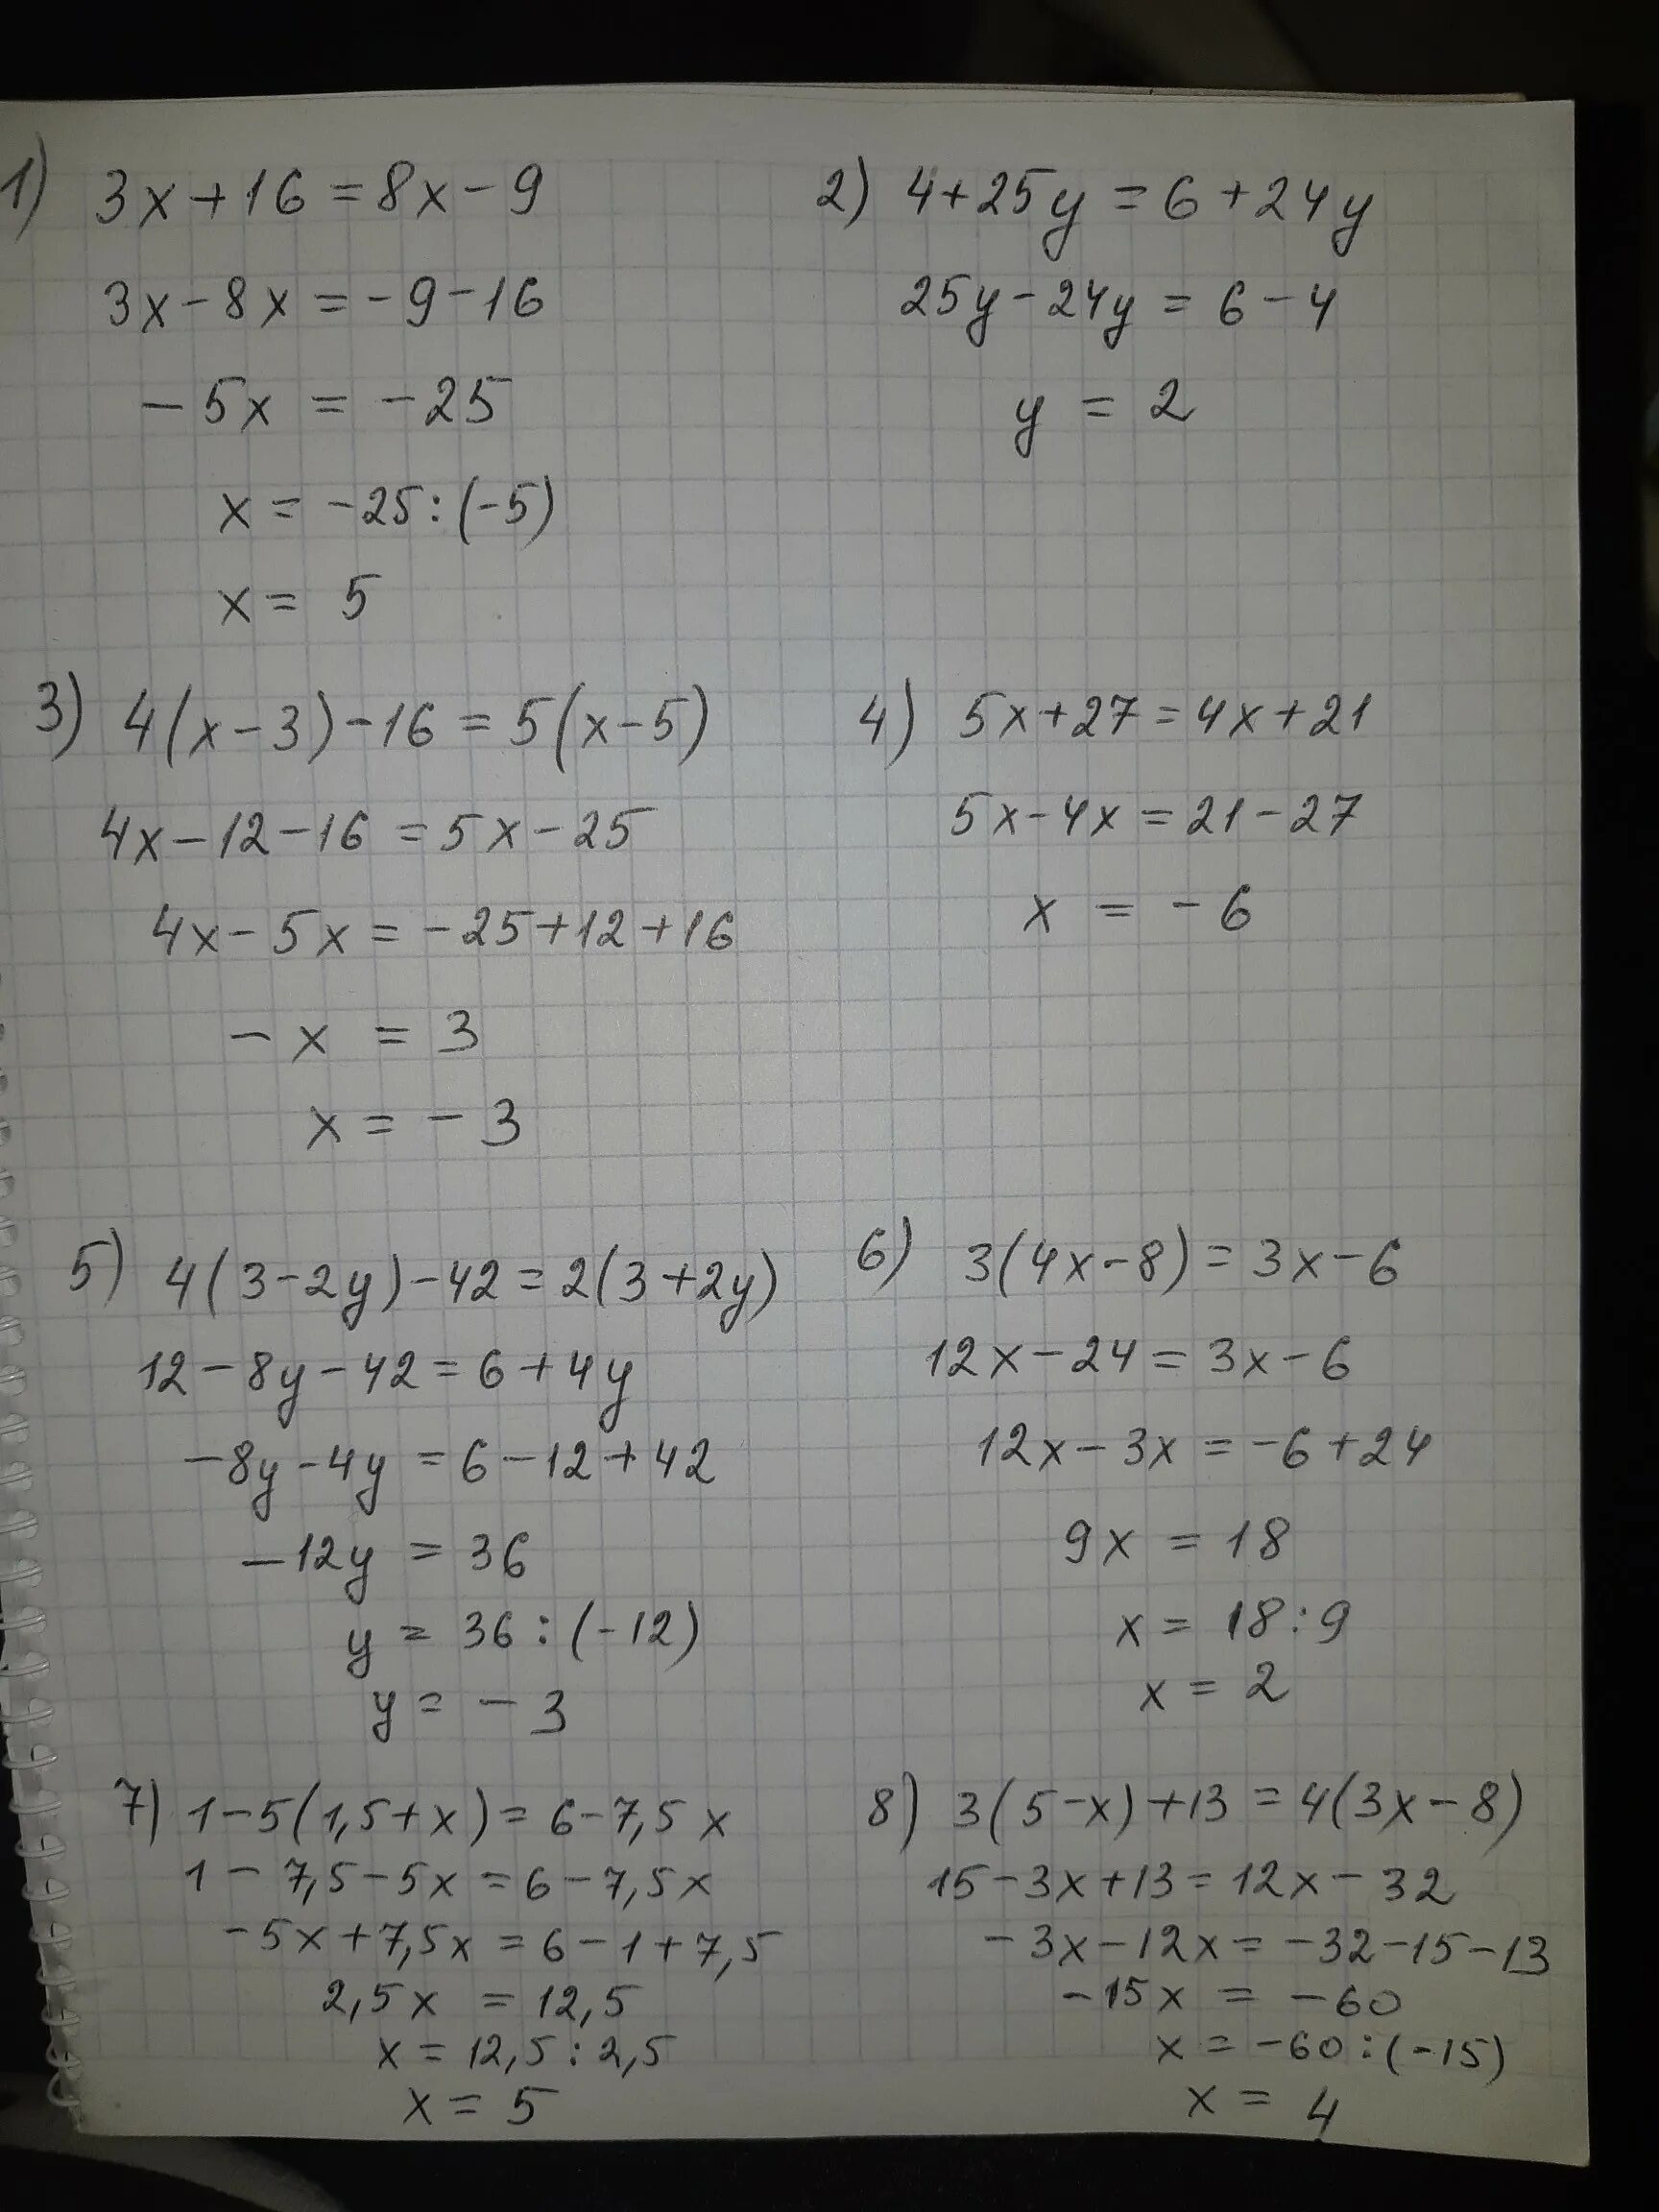 1) 3x+16=8x-9
3x-8x=-9-16
-5x=-25
x=-25:(-5)
x=5
2) 4+25y=6+24y
25y-24y=6-4
y=2
3) 4(x-3)-16=5(x-5)
4x-12-16=5x-25
4x-5x=-25+12+16
-x=3
x=-3
4) 5x+27=4x+21
5x-4x=21-27
x=-6
5) 4(3-2y)-42=2(3+2y)
12-8y-42=6+4y
-8y-4y=6-12+42
-12y=36
y=36:(-12)
y=-3
6) 3(4x-8)=3x-6
12x-24=3x-6
12x-3x=-6+24
9x=18
x=18:9
x=2
7) 1-5(1,5+x)=6-7,5x
1-7,5-5x=6-7,5x
-5x+7,5x=6-1+7,5
2,5x=12,5
x=12,5:2,5
x=5
8) 3(5-x)+13=4(3x-8)
15-3x+13=12x-32
-3x-12x=-32-15-13
-15x=-60
x=-60:(-15)
x=4